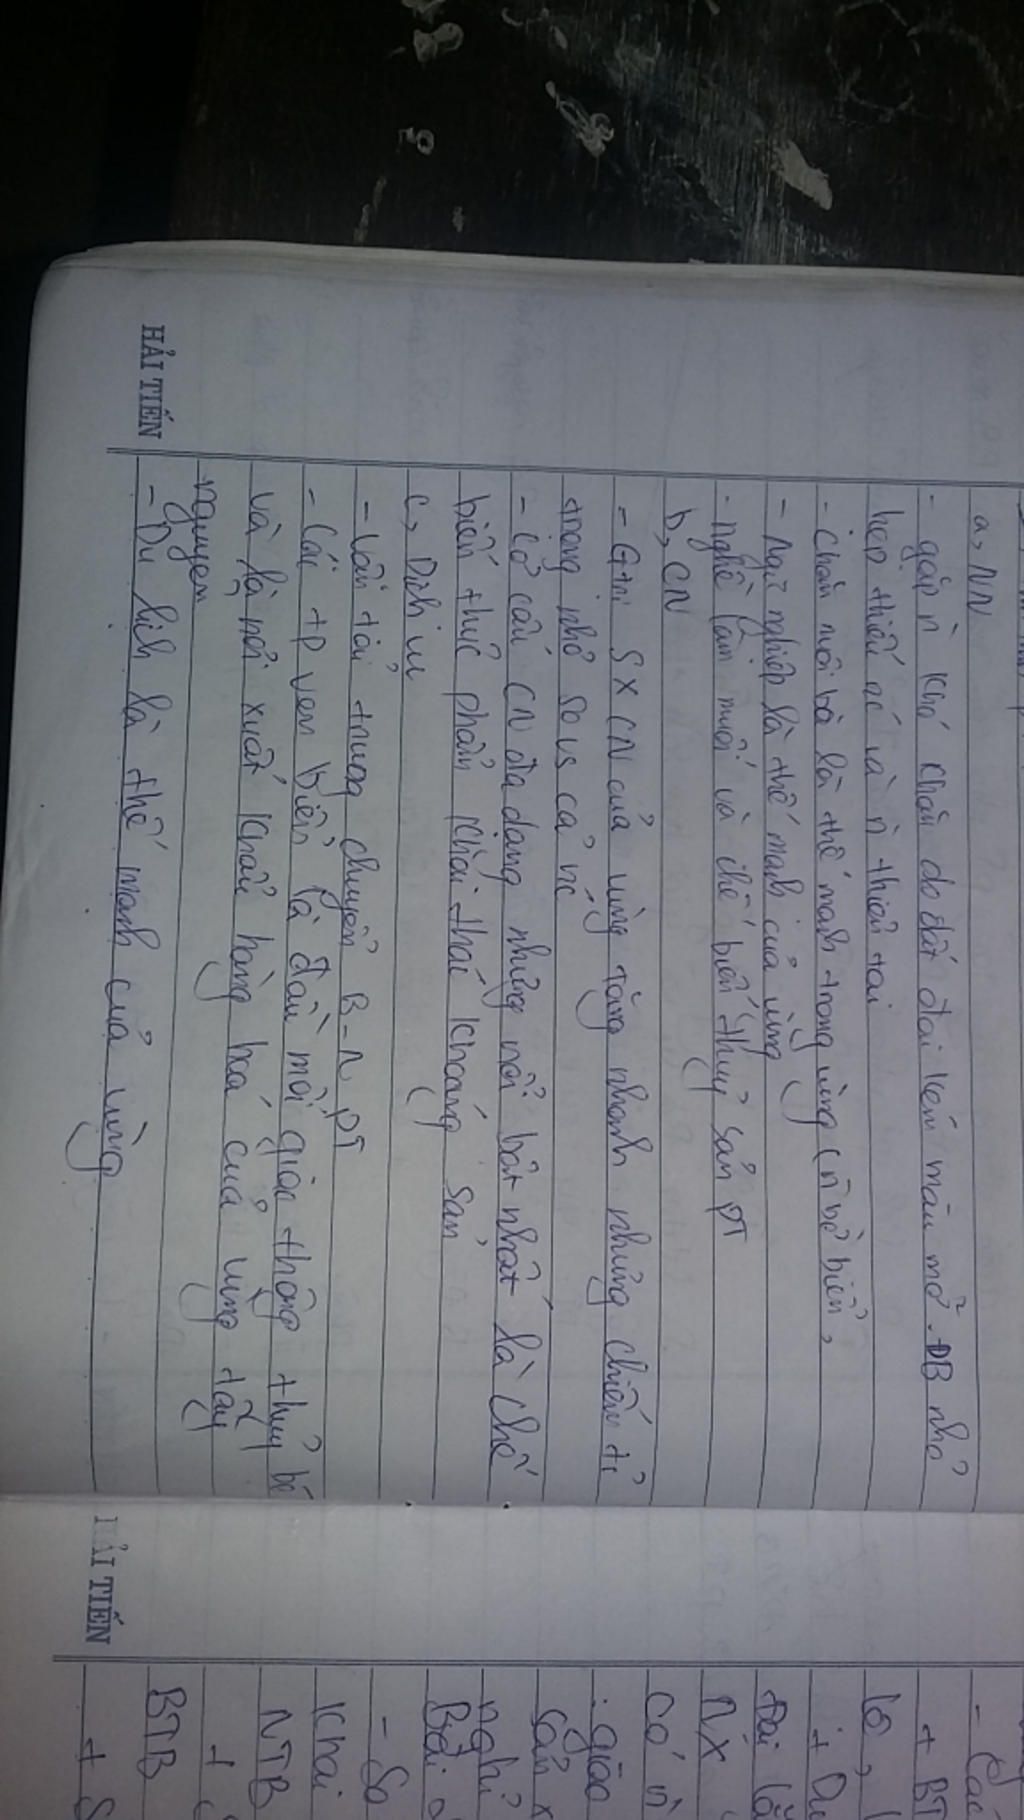 a, NN
- gặp n̄ khó khăn do đất đai kém màu mỡ. ĐB nhỏ
hẹp thiếu nc và n̄ thiên tai
- chăn nuôi bò là thế mạnh trong vùng (n̄ bờ biển,
- Ngư nghiệp là thế mạnh của vùng
- Nghề làm muối và chế biến thuỷ sản PT
b, CN
- Gtrị SX CN của vùng tăng nhanh nhưng chiếm tỉ
trọng nhỏ so vs cả nc
- Cơ cấu CN đa dạng nhưng nổi bật nhất là chế
biến thực phẩm khai thác khoáng sản
c, Dịch vụ
- Vận tải trung chuyển B-N PT
- Các tp ven biển là đầu mối giao thông thuỷ bộ
và là nơi xuất khẩu hàng hoá của vùng tây
nguyên
- Du lịch là thế mạnh của vùng
HẢI TIẾN
- Các
+ BT
+ Du
NX
có n̄
giao
sản x
nghi
- So
khai
NTB
+
BTB
+ S
HẢI TIẾN